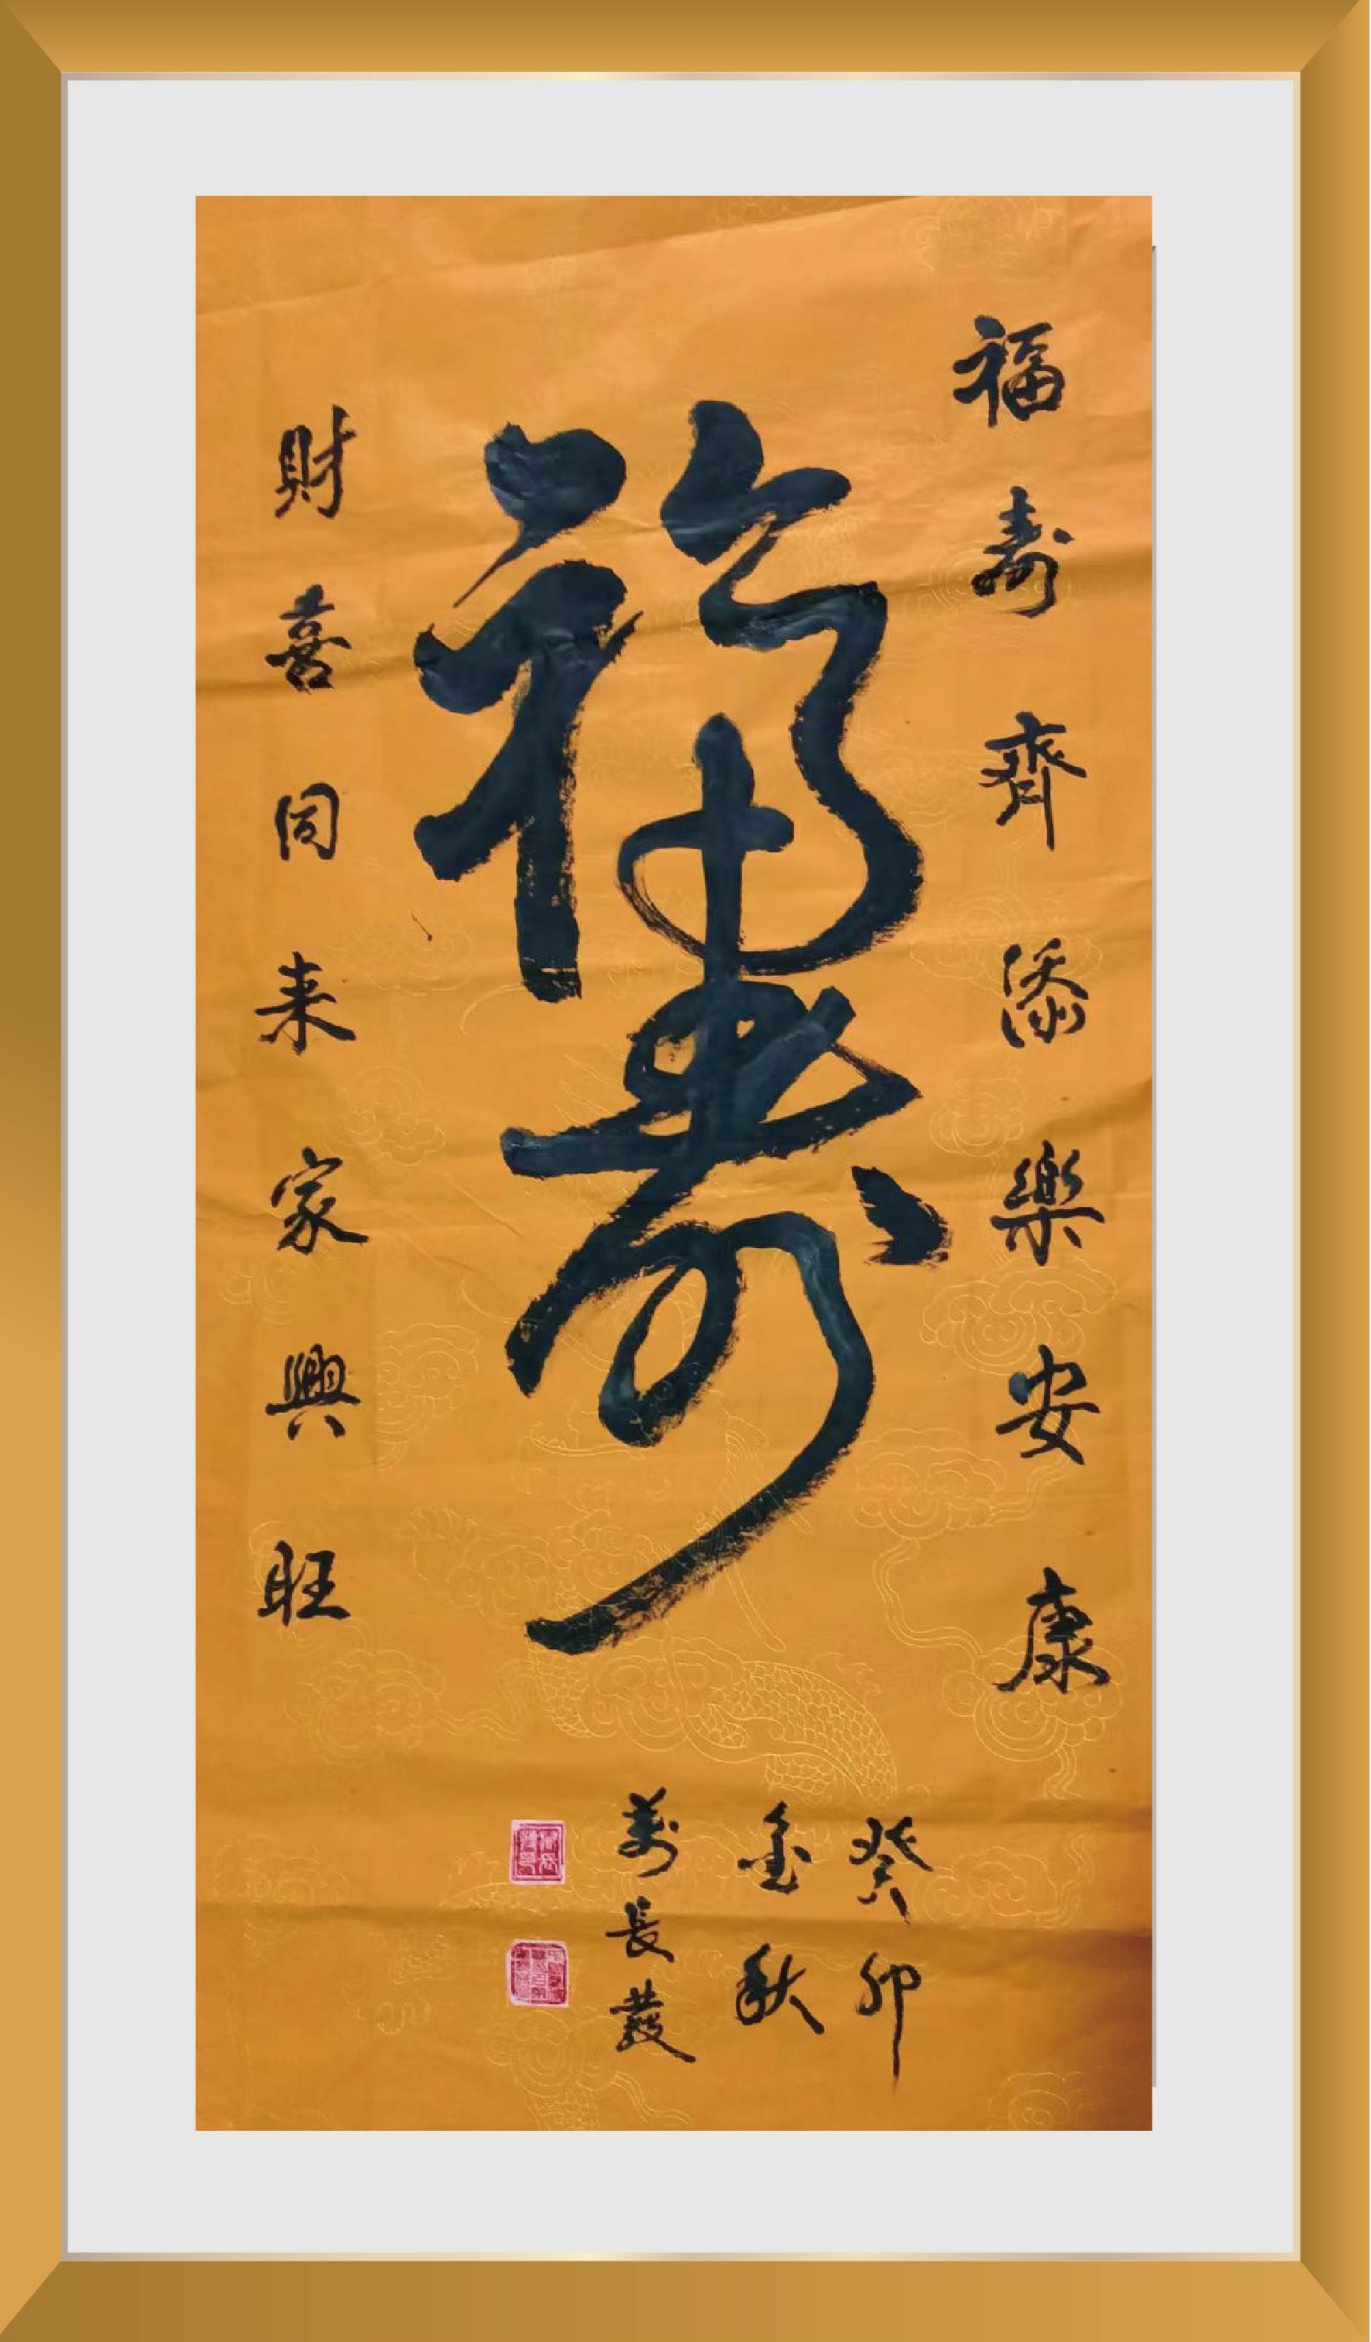 福寿齊添樂安康
福寿
財喜同来家興旺
癸卯
金秋
萬長發